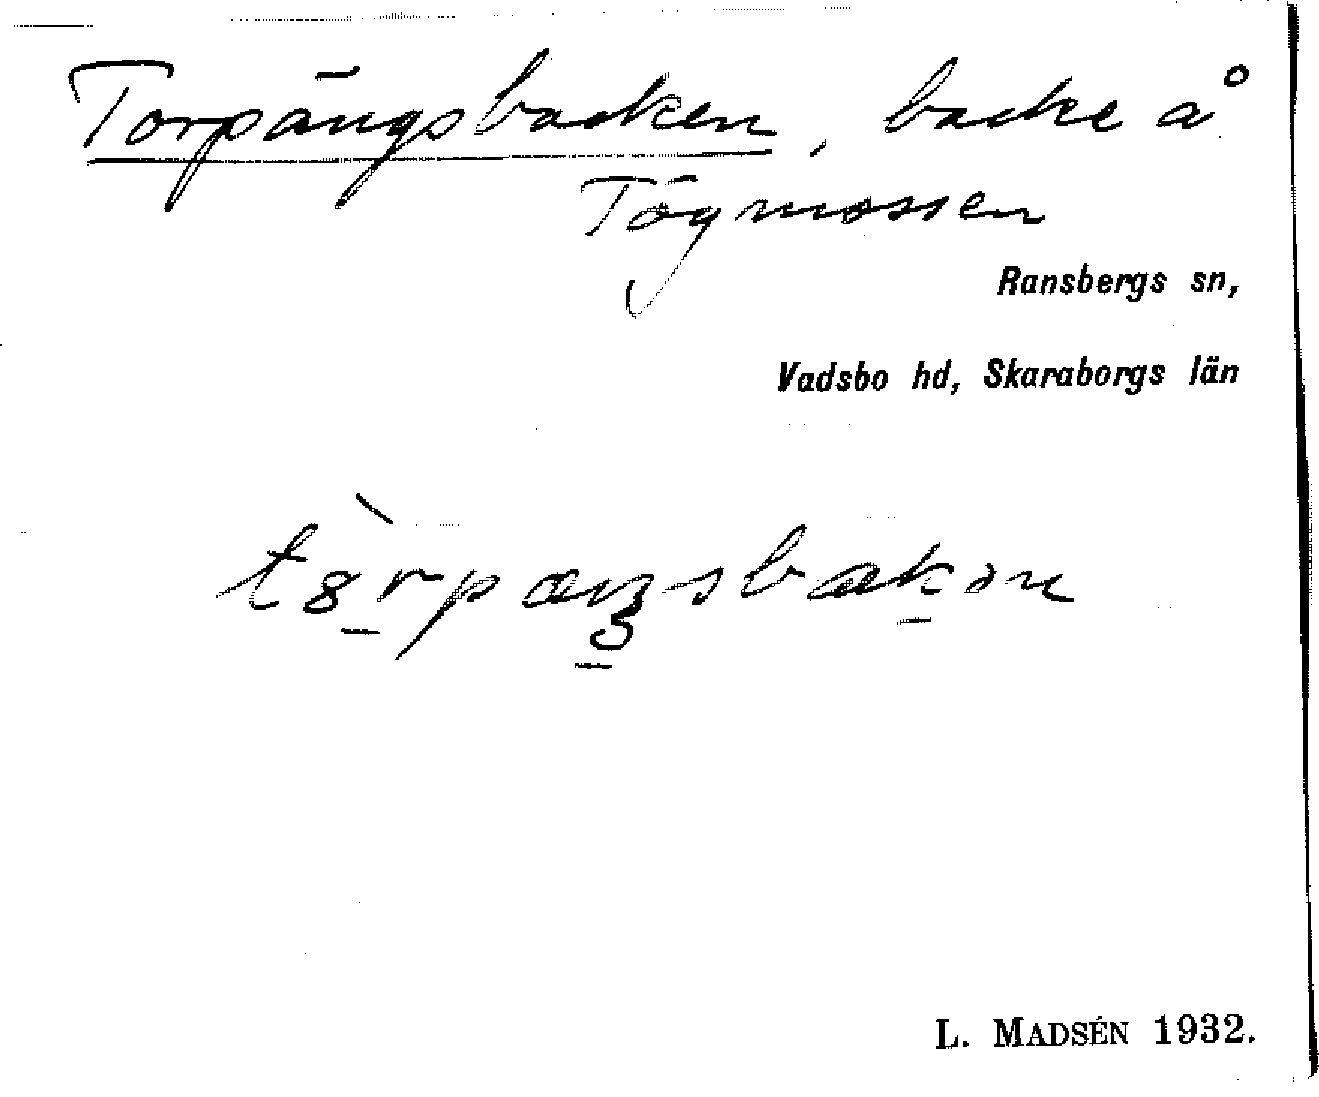 Torpängsbacken, backe å
Tögmossen
Ransbergs sn,
Vadsbo hd, Skaraborgs län
L. MADSÉN 1932.